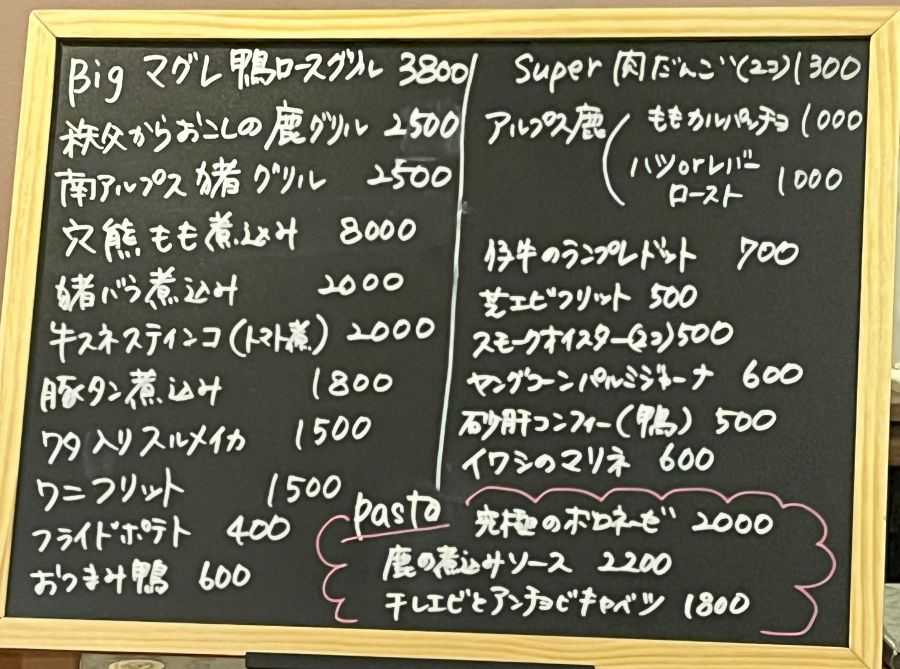 Big マグレ鴨ロースグリル 3800
秩父からおこしの鹿グリル 2500
南アルプス猪グリル 2500
穴熊もも煮込み 8000
猪バラ煮込み 2000
牛スネスティンコ(トマト煮) 2000
豚タン煮込み 1800
ワタ入りスルメイカ 1500
ワニフリット 1500
フライドポテト 400
おつまみ鴨 600
Super 肉だんご(2コ) 1300
アルプス鹿 ( ももカルパッチョ 1000
ハツorレバー
ロースト 1000
仔牛のランプレドット 700
芝エビフリット 500
スモークオイスター(2コ) 500
ヤングコーンパルミジャーナ 600
砂肝コンフィー(鴨) 500
イワシのマリネ 600
pasta
究極のボロネーゼ 2000
鹿の煮込みソース 2200
干しエビとアンチョビキャベツ 1800